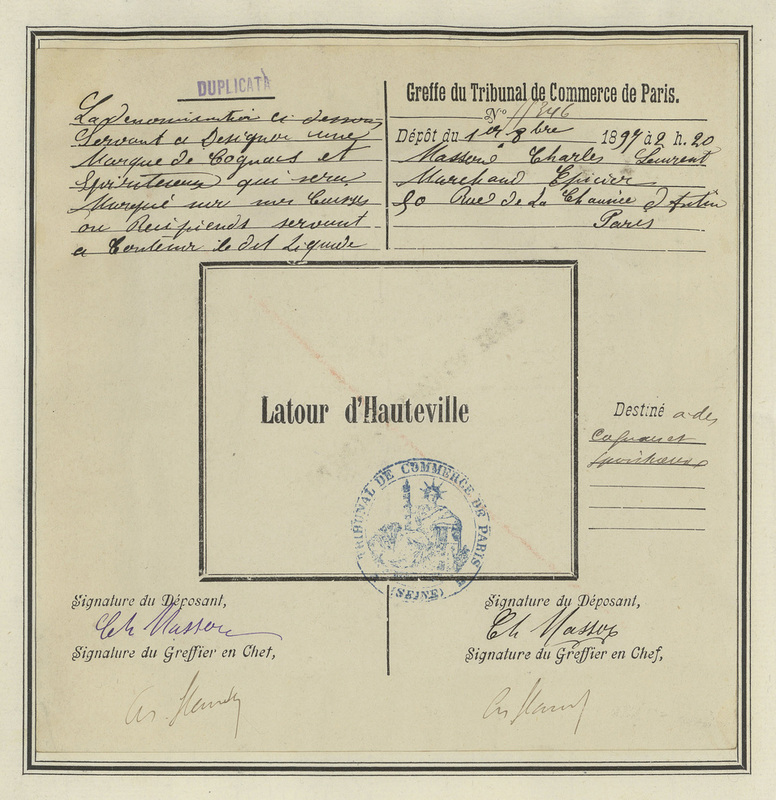 DUPLICATA
La dénomination ci dessous
Servant a Designer une
Marque de Cognacs et
Spiritueux qui sera
Marqué sur mes Caisses
ou Recipients servant
a Contenir le dit Liquide
Greffe du Tribunal de Commerce de Paris.
N°
Dépôt du 1er 8bre 1897 à 2 h. 20
Charles Laurent
Marchand Epicier
Rue de La Chaussée d'Antin
Paris
Latour d'Hauteville
TRIBUNAL DE COMMERCE DE PARIS
(SEINE)
Destiné a des
Cognacs et
spiritueux
Signature du Déposant,
Ch
Signature du Greffier en Chef,
Signature du Déposant,
Ch
Signature du Greffier en Chef,